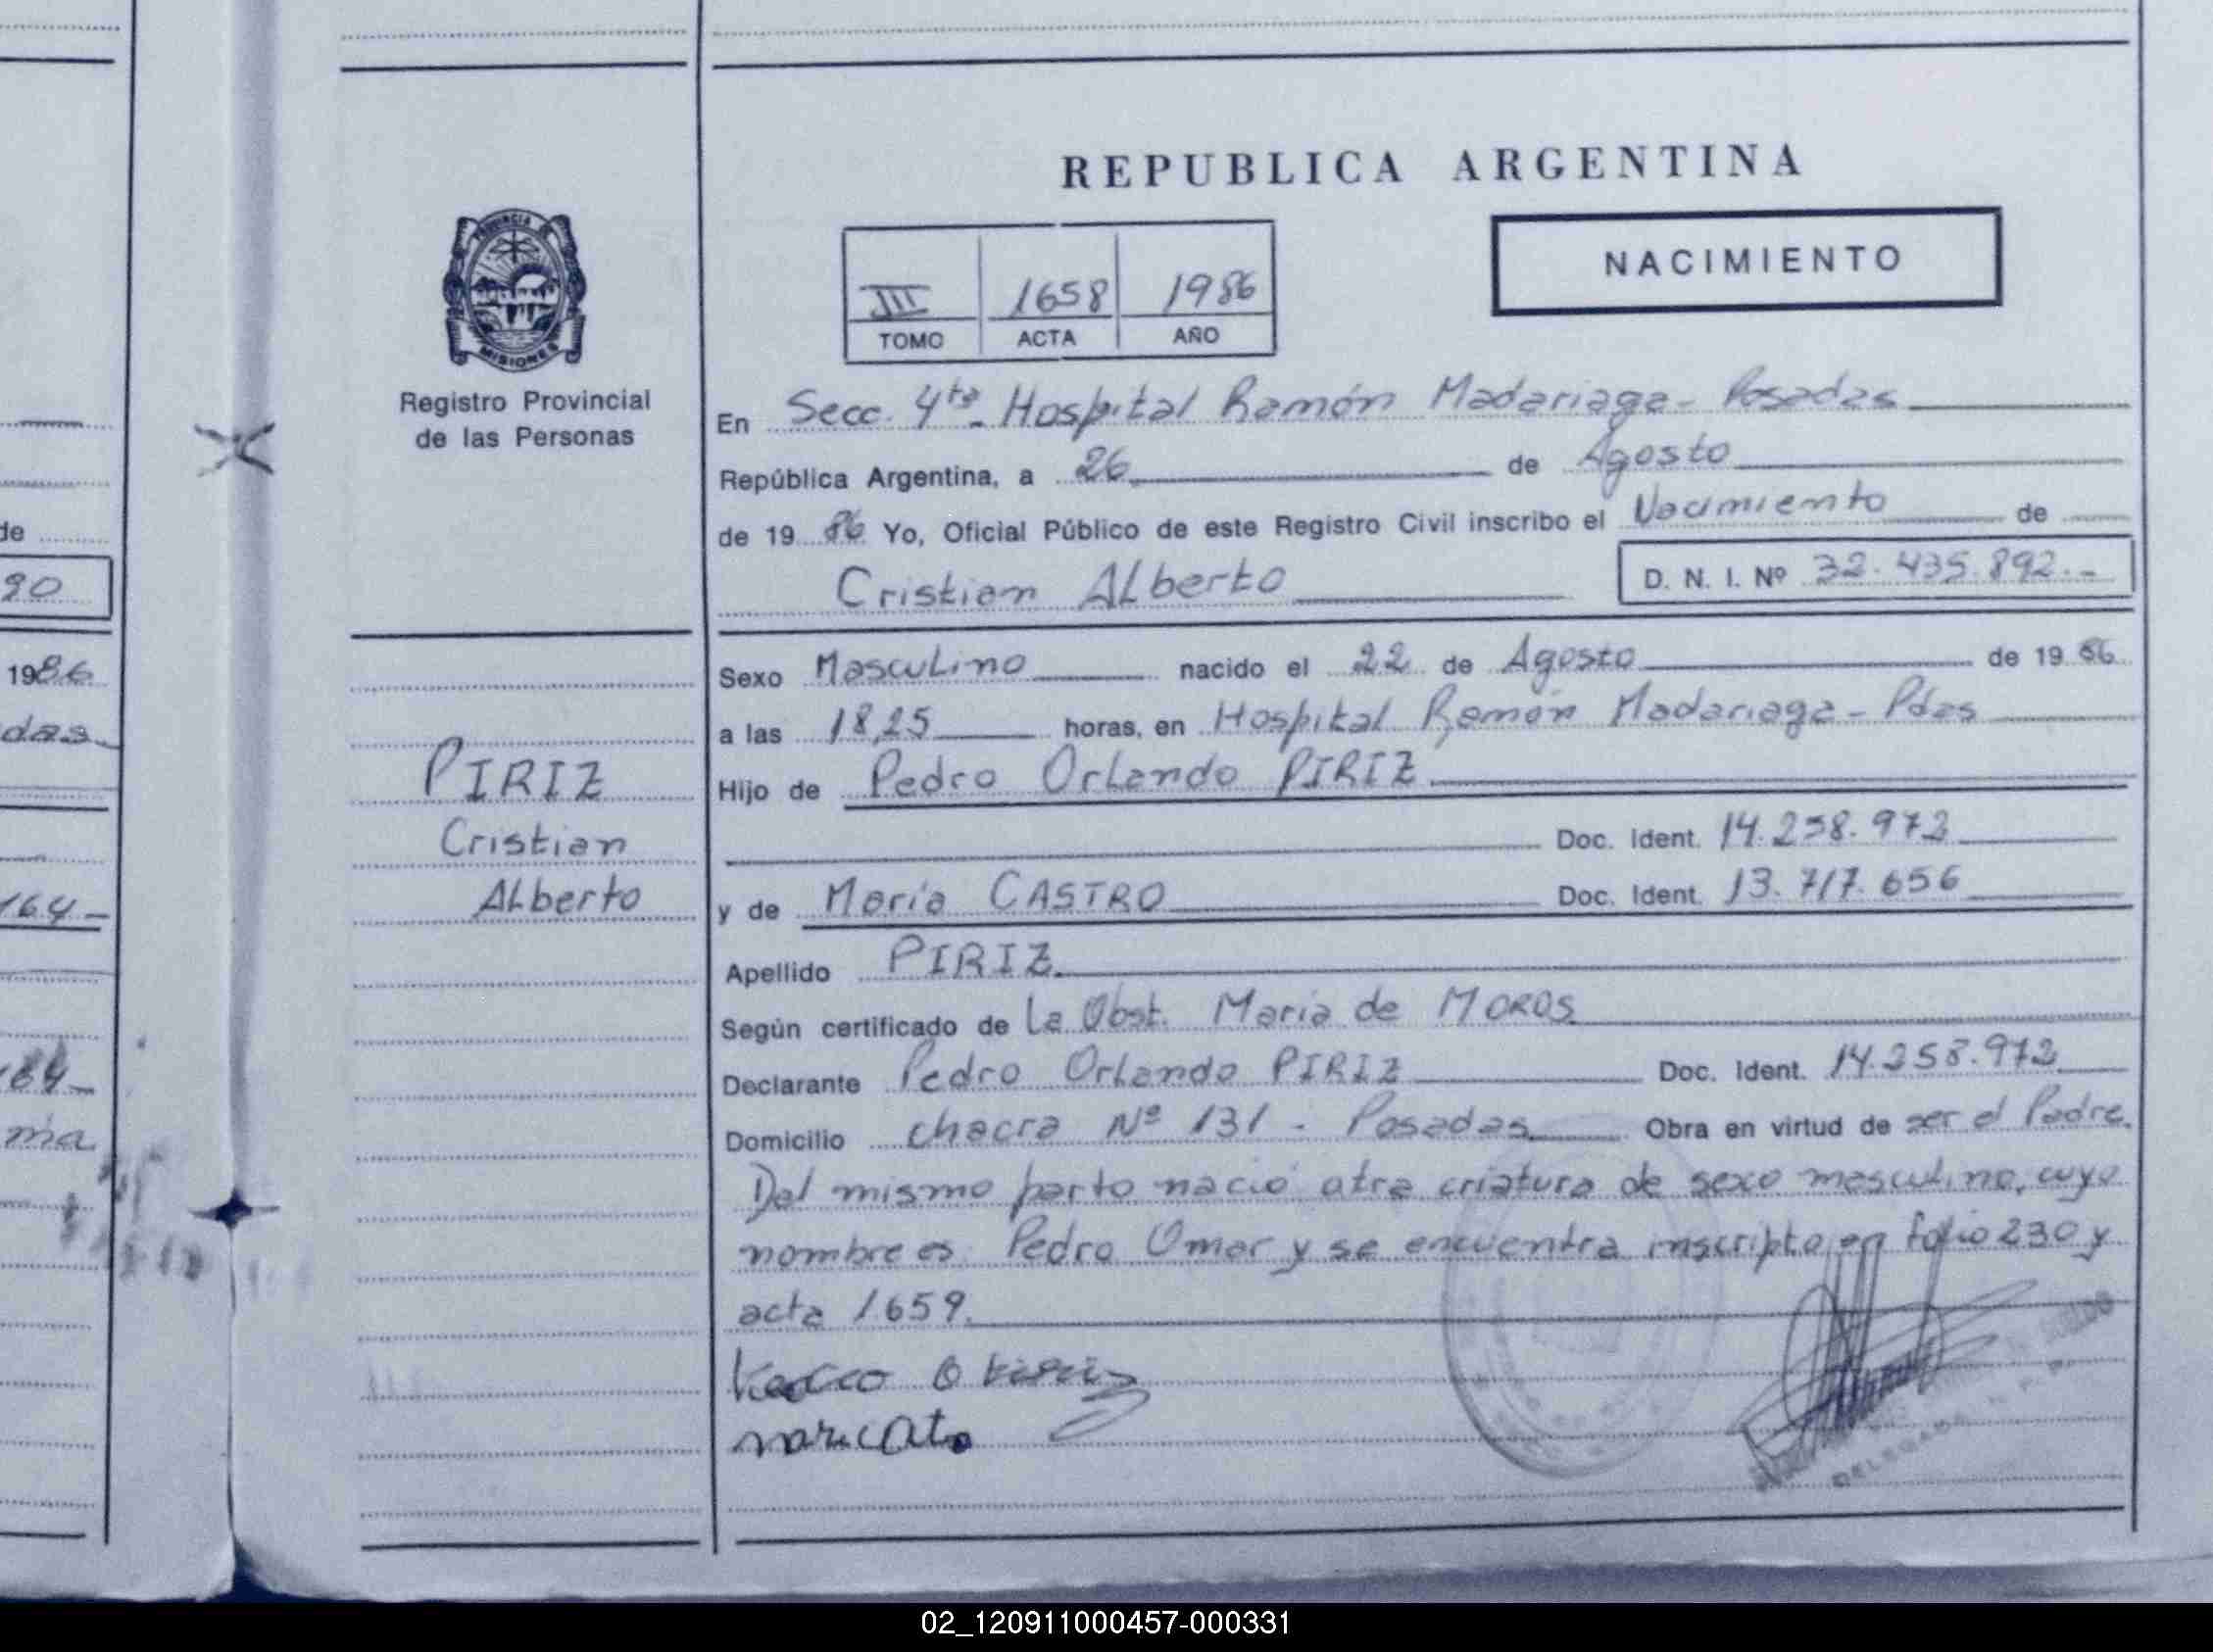 REPUBLICA ARGENTINA
NACIMIENTO
III 1658 1986
TOMO ACTA AÑO
PROVINCIA DE
MISIONES
Registro Provincial
de las Personas
En Secc. 4ta. Hospital Ramón Madariaga - Posadas
República Argentina, a 26 de Agosto
de 19 86 Yo, Oficial Público de este Registro Civil inscribo el Nacimiento de
Cristian Alberto D. N. I. Nº 32.435.892.-
Sexo Masculino nacido el 22 de Agosto de 19 86
a las 18,25 horas, en Hospital Ramón Madariaga - Pdas
Hijo de Pedro Orlando PIRIZ
Doc. Ident. 14.258.972
y de María CASTRO Doc. Ident. 13.717.656
Apellido PIRIZ
Según certificado de La Obst. Maria de MOROS
Declarante Pedro Orlando PIRIZ Doc. Ident. 14.258.972
Domicilio chacra Nº 131 - Posadas Obra en virtud de ser el Padre.
Del mismo parto nació otra criatura de sexo masculino, cuyo
nombre es Pedro Omar y se encuentra inscripto en folio 230 y
acta 1659.
PIRIZ
Cristian
Alberto
DELEGADA
de
90
1986
das
164-
164-
ma
02_120911000457-000331